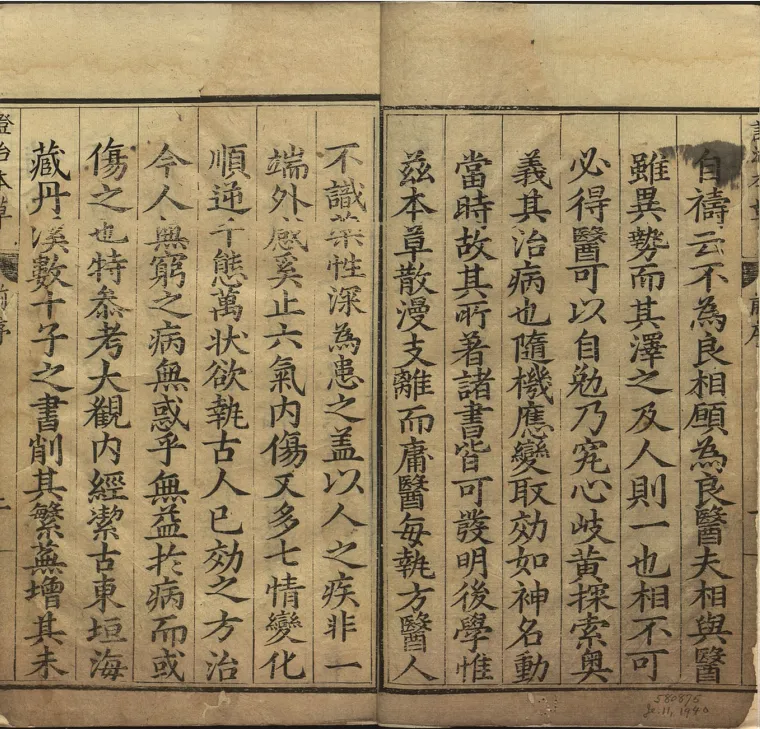 自禱云不為良相願為良醫夫相與醫
雖異勢而其澤之及人則一也相不可
必得醫可以自勉乃究心岐黃探索奧
義其治病也隨機應變取効如神名動
當時故其所著諸書皆可發明後學惟
兹本草散漫支離而庸醫每執方醫人
不識藥性深為患之盖以人之疾非一
端外感奚止六氣內傷又多七情變化
順逆千態萬状欲執古人已効之方治
今人無窮之病無惑乎無益扵病而或
傷之也特叅考大觀内經潔古東垣海
藏丹溪數十子之書削其繁蕪增其未
證治本草 前序 二
580876
Je. 11, 1940